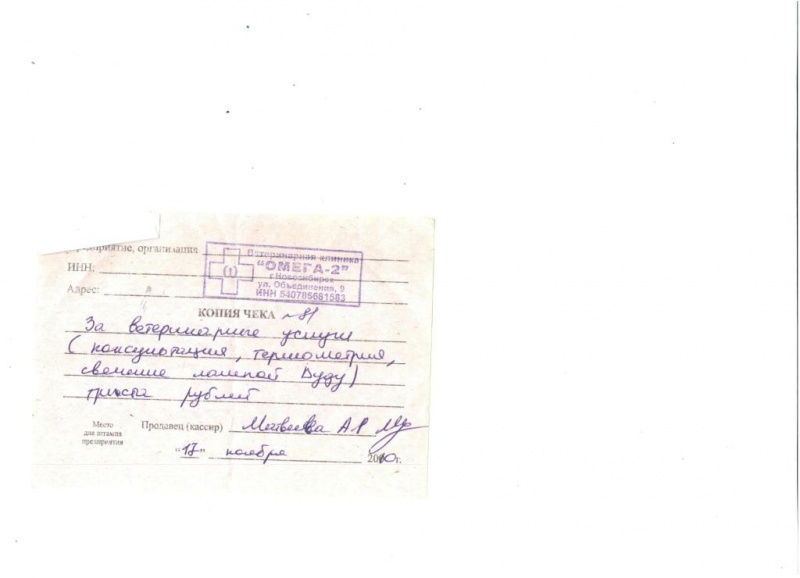 предприятие, организация
Ветеринарная клиника
"ОМЕГА-2"
г.Новосибирск
ул. Объединения, 9
ИНН 540785681583
ИНН:
Адрес:
КОПИЯ ЧЕКА
За ветеринарные услуги
(консультация, термометрия,
свечение лампой Вуду)
триста рублей
Место для штампа предприятия
Продавец (кассир) Матвеева А
"17" ноября 2010г.